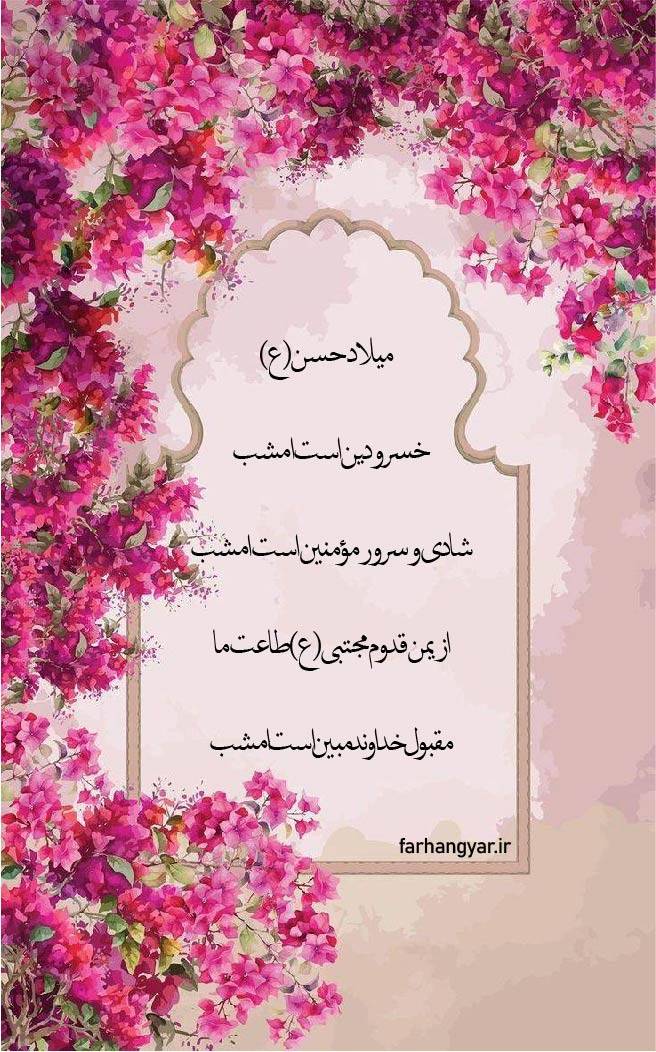 میلاد حسن (ع)
خسرو دین است امشب
شادی و سرور مؤمنین است امشب
از یمن قدوم مجتبی (ع) طاعت ما
مقبول خداوند مبین است امشب
farhangyar.ir